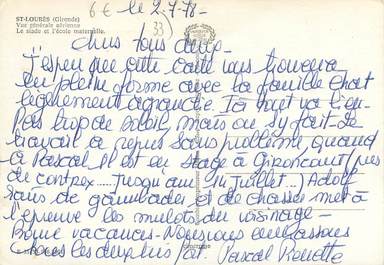 ST-LOUBÈS (Gironde)
Vue générale aérienne
Le stade et l'école maternelle.
6 €
33
le 2-7-78-
Chers tous deux-
J'espère que cette carte vous trouvera
en pleine forme avec la famille chat
légèrement agrandie. Ici tout va bien-
Pas trop de soleil, mais on s'y fait- Le
travail a repris sans problème, quand
à Pascal il est en stage à Gironcourt (près
de contrex..... jusqu'au 14 juillet...) Adolf
de gambades et de chasse met à
l'épreuve les mulots du voisinage-
Bonne vacances- Nous vous embrassons
tous les deux bien fort. Pascal